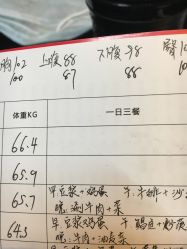 胸102 上腹88 下腹98 臀10
100 87 88
体重KG 一日三餐
66.4
65.9
65.7 早:豆浆+鸡蛋 午:牛排+沙
晚:涮牛肉+菜
64.5 早:豆浆+鸡蛋 午:
晚:牛肉+油麦菜